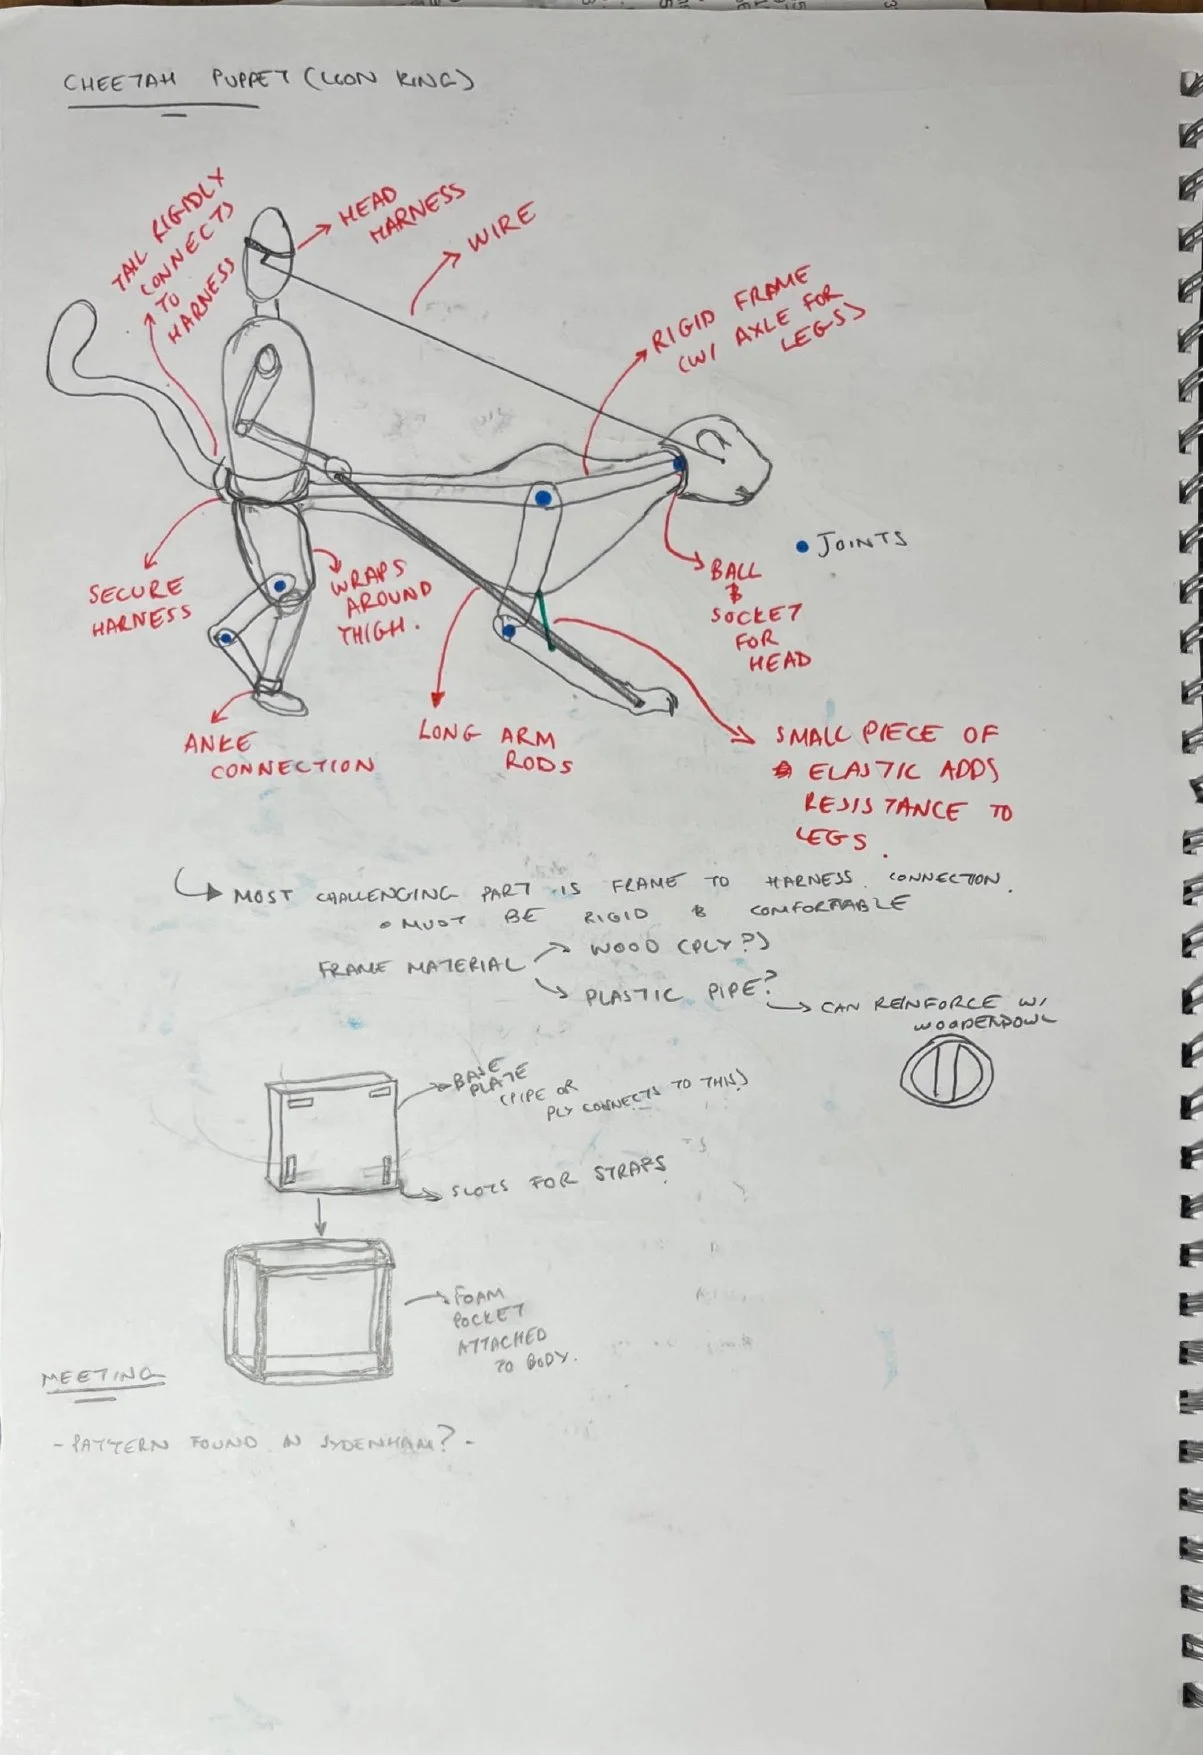 CHEETAH PUPPET (LION KING)
TAIL RIGADLY
CONNECTS
TO
HARNESS
HEAD
HARNESS
WIRE
RIGID FRAME
(W/ AXLE FOR
LEGS)
JOINTS
SECURE
HARNESS
WRAPS
AROUND
THIGH.
BALL
&
SOCKET
FOR
HEAD
ANKE
CONNECTION
LONG ARM
RODS
SMALL PIECE OF
ELASTIC ADDS
RESISTANCE TO
LEGS.
MOST CHALLENGING PART IS FRAME TO HARNESS CONNECTION.
• MUST BE RIGID & COMFORTABLE
FRAME MATERIAL
WOOD (PLY?)
PLASTIC PIPE?
CAN REINFORCE W/
WOODEN DOWL
BASE
PLATE
(PIPE OR
PLY CONNECTS TO THIS)
SLOTS FOR STRAPS
FOAM
POCKET
ATTACHED
TO BODY.
MEETING
- PATTERN FOUND IN SYDENHAM? -